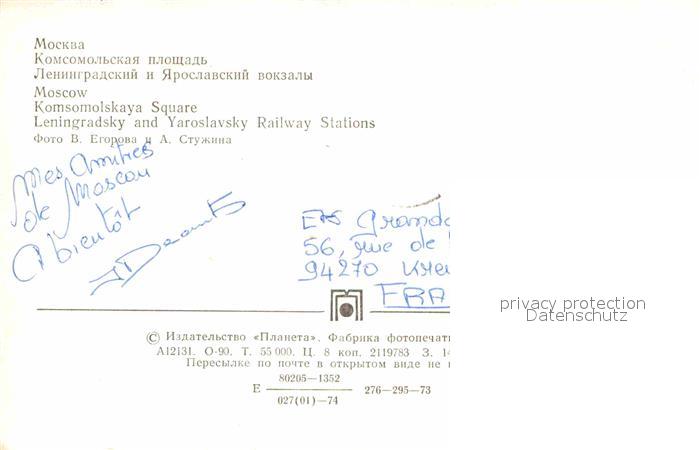 Москва
Комсомольская площадь
Ленинградский и Ярославский вокзалы
Moscow
Komsomolskaya Square
Leningradsky and Yaroslavsky Railway Stations
Фото В. Егорова и А. Стужина
Mes Amitiés
de Moscou
A bientôt
Ets Grande
56, rue de
94270 Kre
FRA
privacy protection
Datenschutz
© Издательство «Планета». Фабрика фотопечат
А12131. О-90. Т. 55 000. Ц. 8 коп. 2119783 З. 14
Пересылке по почте в открытом виде не
80205—1352
Е 276—295—73
027(01)—74